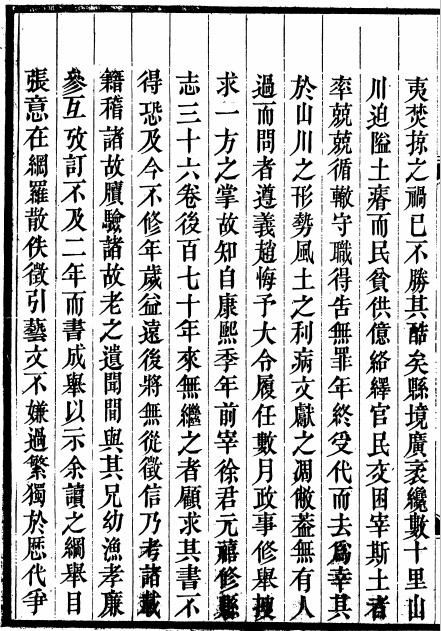 夷焚掠之禍已不勝其酷矣縣境廣袤纔數十里山
川迫隘土瘠而民貧供億絡繹官民交困宰斯土者
率兢兢循轍守職得告無罪年終受代而去爲幸其
於山川之形勢風土之利病文獻之凋敝葢無有人
過而問者遵義趙悔予大令履任數月政事修舉搜
求一方之掌故知自康熙季年前宰徐君元禧修縣
志三十六卷後百七十年來無繼之者顧求其書不
得恐及今不修年歲益遠後將無從徵信乃考諸載
籍稽諸故牘驗諸故老之遺聞間與其兄幼漁孝廉
參互攷訂不及二年而書成舉以示余讀之綱舉目
張意在網羅散佚徵引藝文不嫌過繁獨於歷代爭